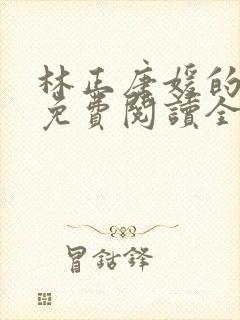 林正唐媛的
免費閱讀全
冒鈷鋒